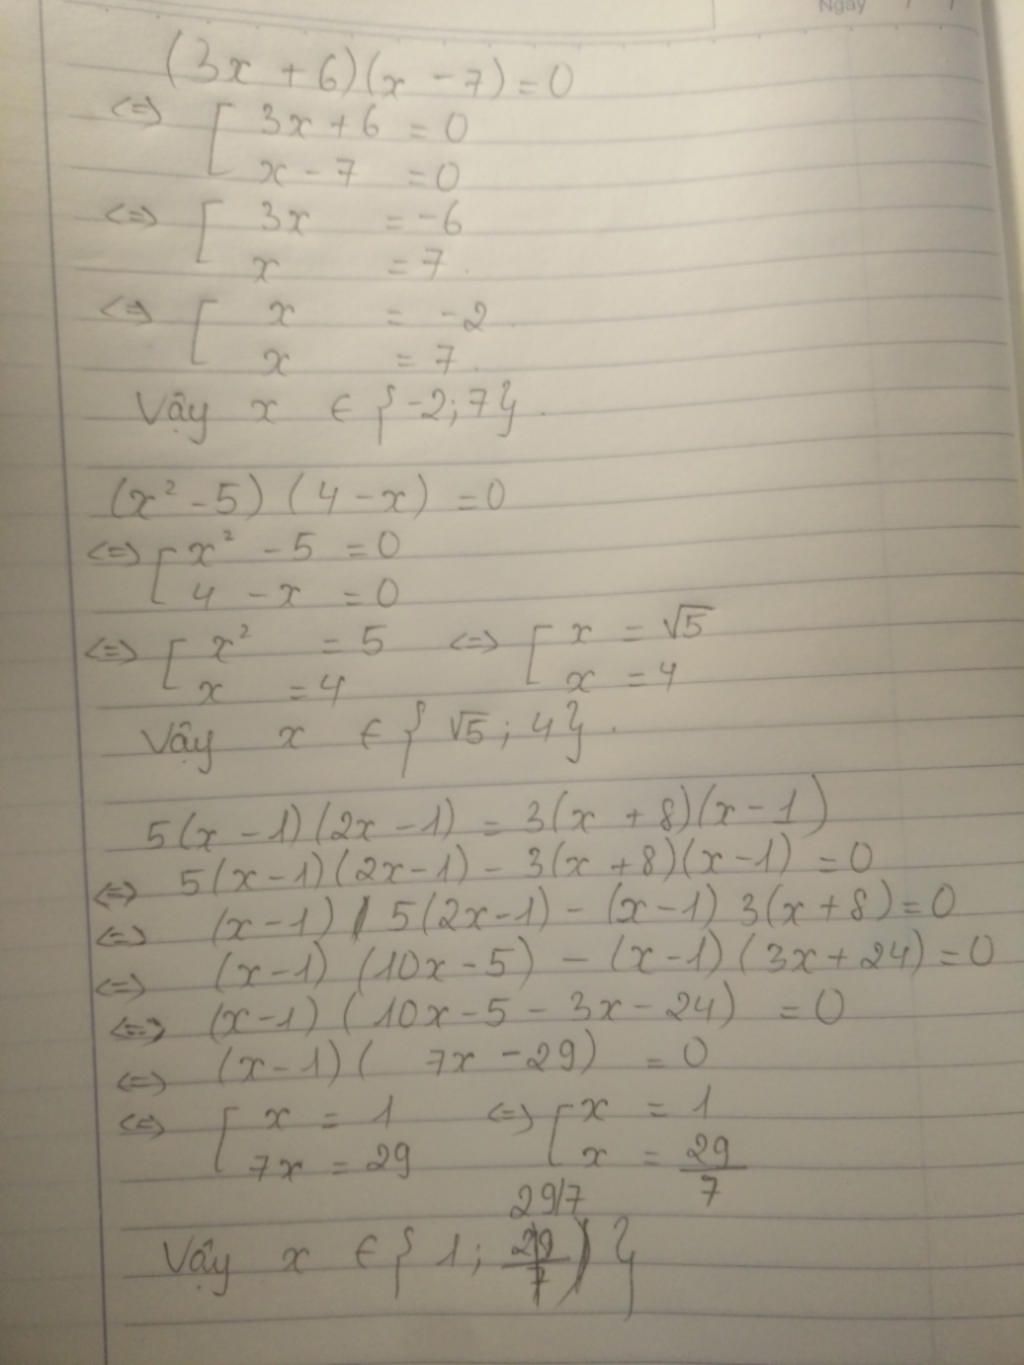 Ngày / /
(3x + 6)(x - 7) = 0
<=> [ 3x + 6 = 0
x - 7 = 0
<=> [ 3x = -6
x = 7.
<=> [ x = -2
x = 7.
Vậy x ∈ {-2; 7}.
(x² - 5) (4 - x) = 0
<=> [ x² - 5 = 0
4 - x = 0
<=> [ x² = 5 <=> [ x = √5
x = 4 x = 4
Vậy x ∈ { √5 ; 4}.
5(x - 1)(2x - 1) = 3(x + 8)(x - 1)
<=> 5(x - 1)(2x - 1) - 3(x + 8)(x - 1) = 0
<=> (x - 1) 5(2x - 1) - (x - 1) 3(x + 8) = 0
<=> (x - 1) (10x - 5) - (x - 1) (3x + 24) = 0
<=> (x - 1) ( 10x - 5 - 3x - 24) = 0
<=> (x - 1) ( 7x - 29) = 0
<=> [ x = 1 <=> [ x = 1
7x = 29 x = 29/7
29/7
Vậy x ∈ { 1 ; 29/7 }